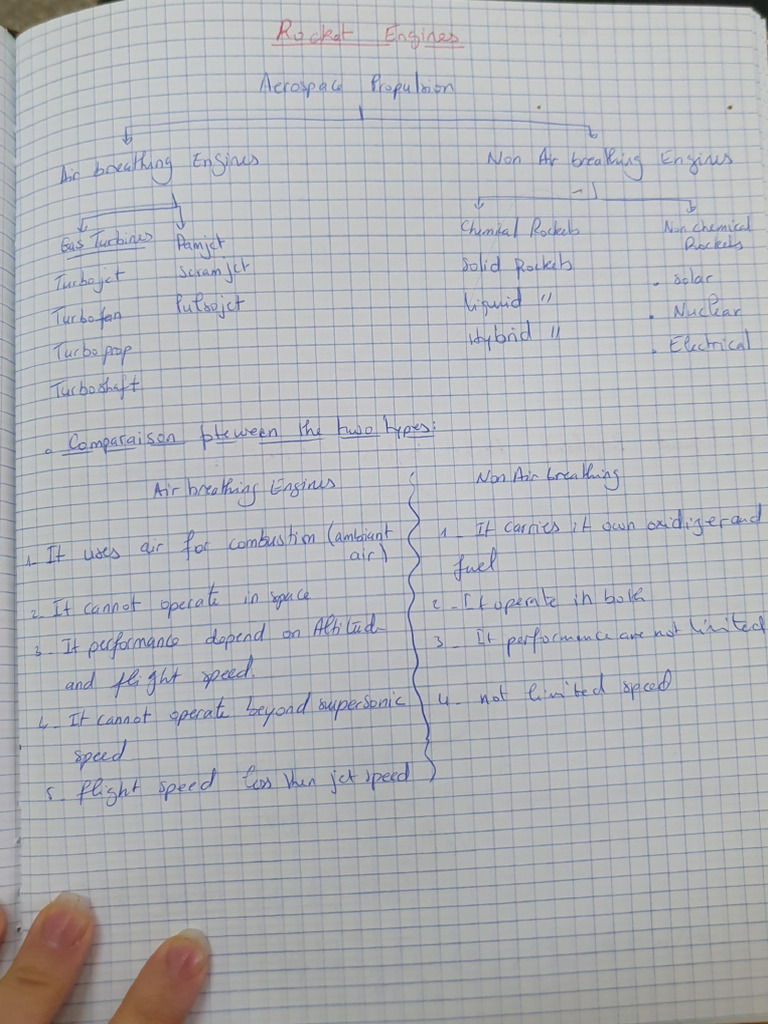 Rocket Engines
Aerospace Propulsion
Air breathing Engines
Non Air breathing Engines
Gas Turbines
Turbojet
Turbofan
Turboprop
Turboshaft
Ramjet
Scramjet
Pulsojet
Chemical Rockets
Solid Rockets
liquid "
Hybrid "
Non chemical
Rockets
. Solar
. Nuclear
. Electrical
. Comparaison between the two types:
Air breathing Engines
1_ It uses air for combustion (ambiant
air)
2_ It cannot operate in space
3_ It performance depend on Altitud
and flight speed.
4_ It cannot operate beyond supersonic
speed
5_ flight speed less then jet speed
Non Air breathing
1_ It carries it own oxidizer and
fuel
2_ It operate in both
3_ It performence are not limited
4_ not limited speed